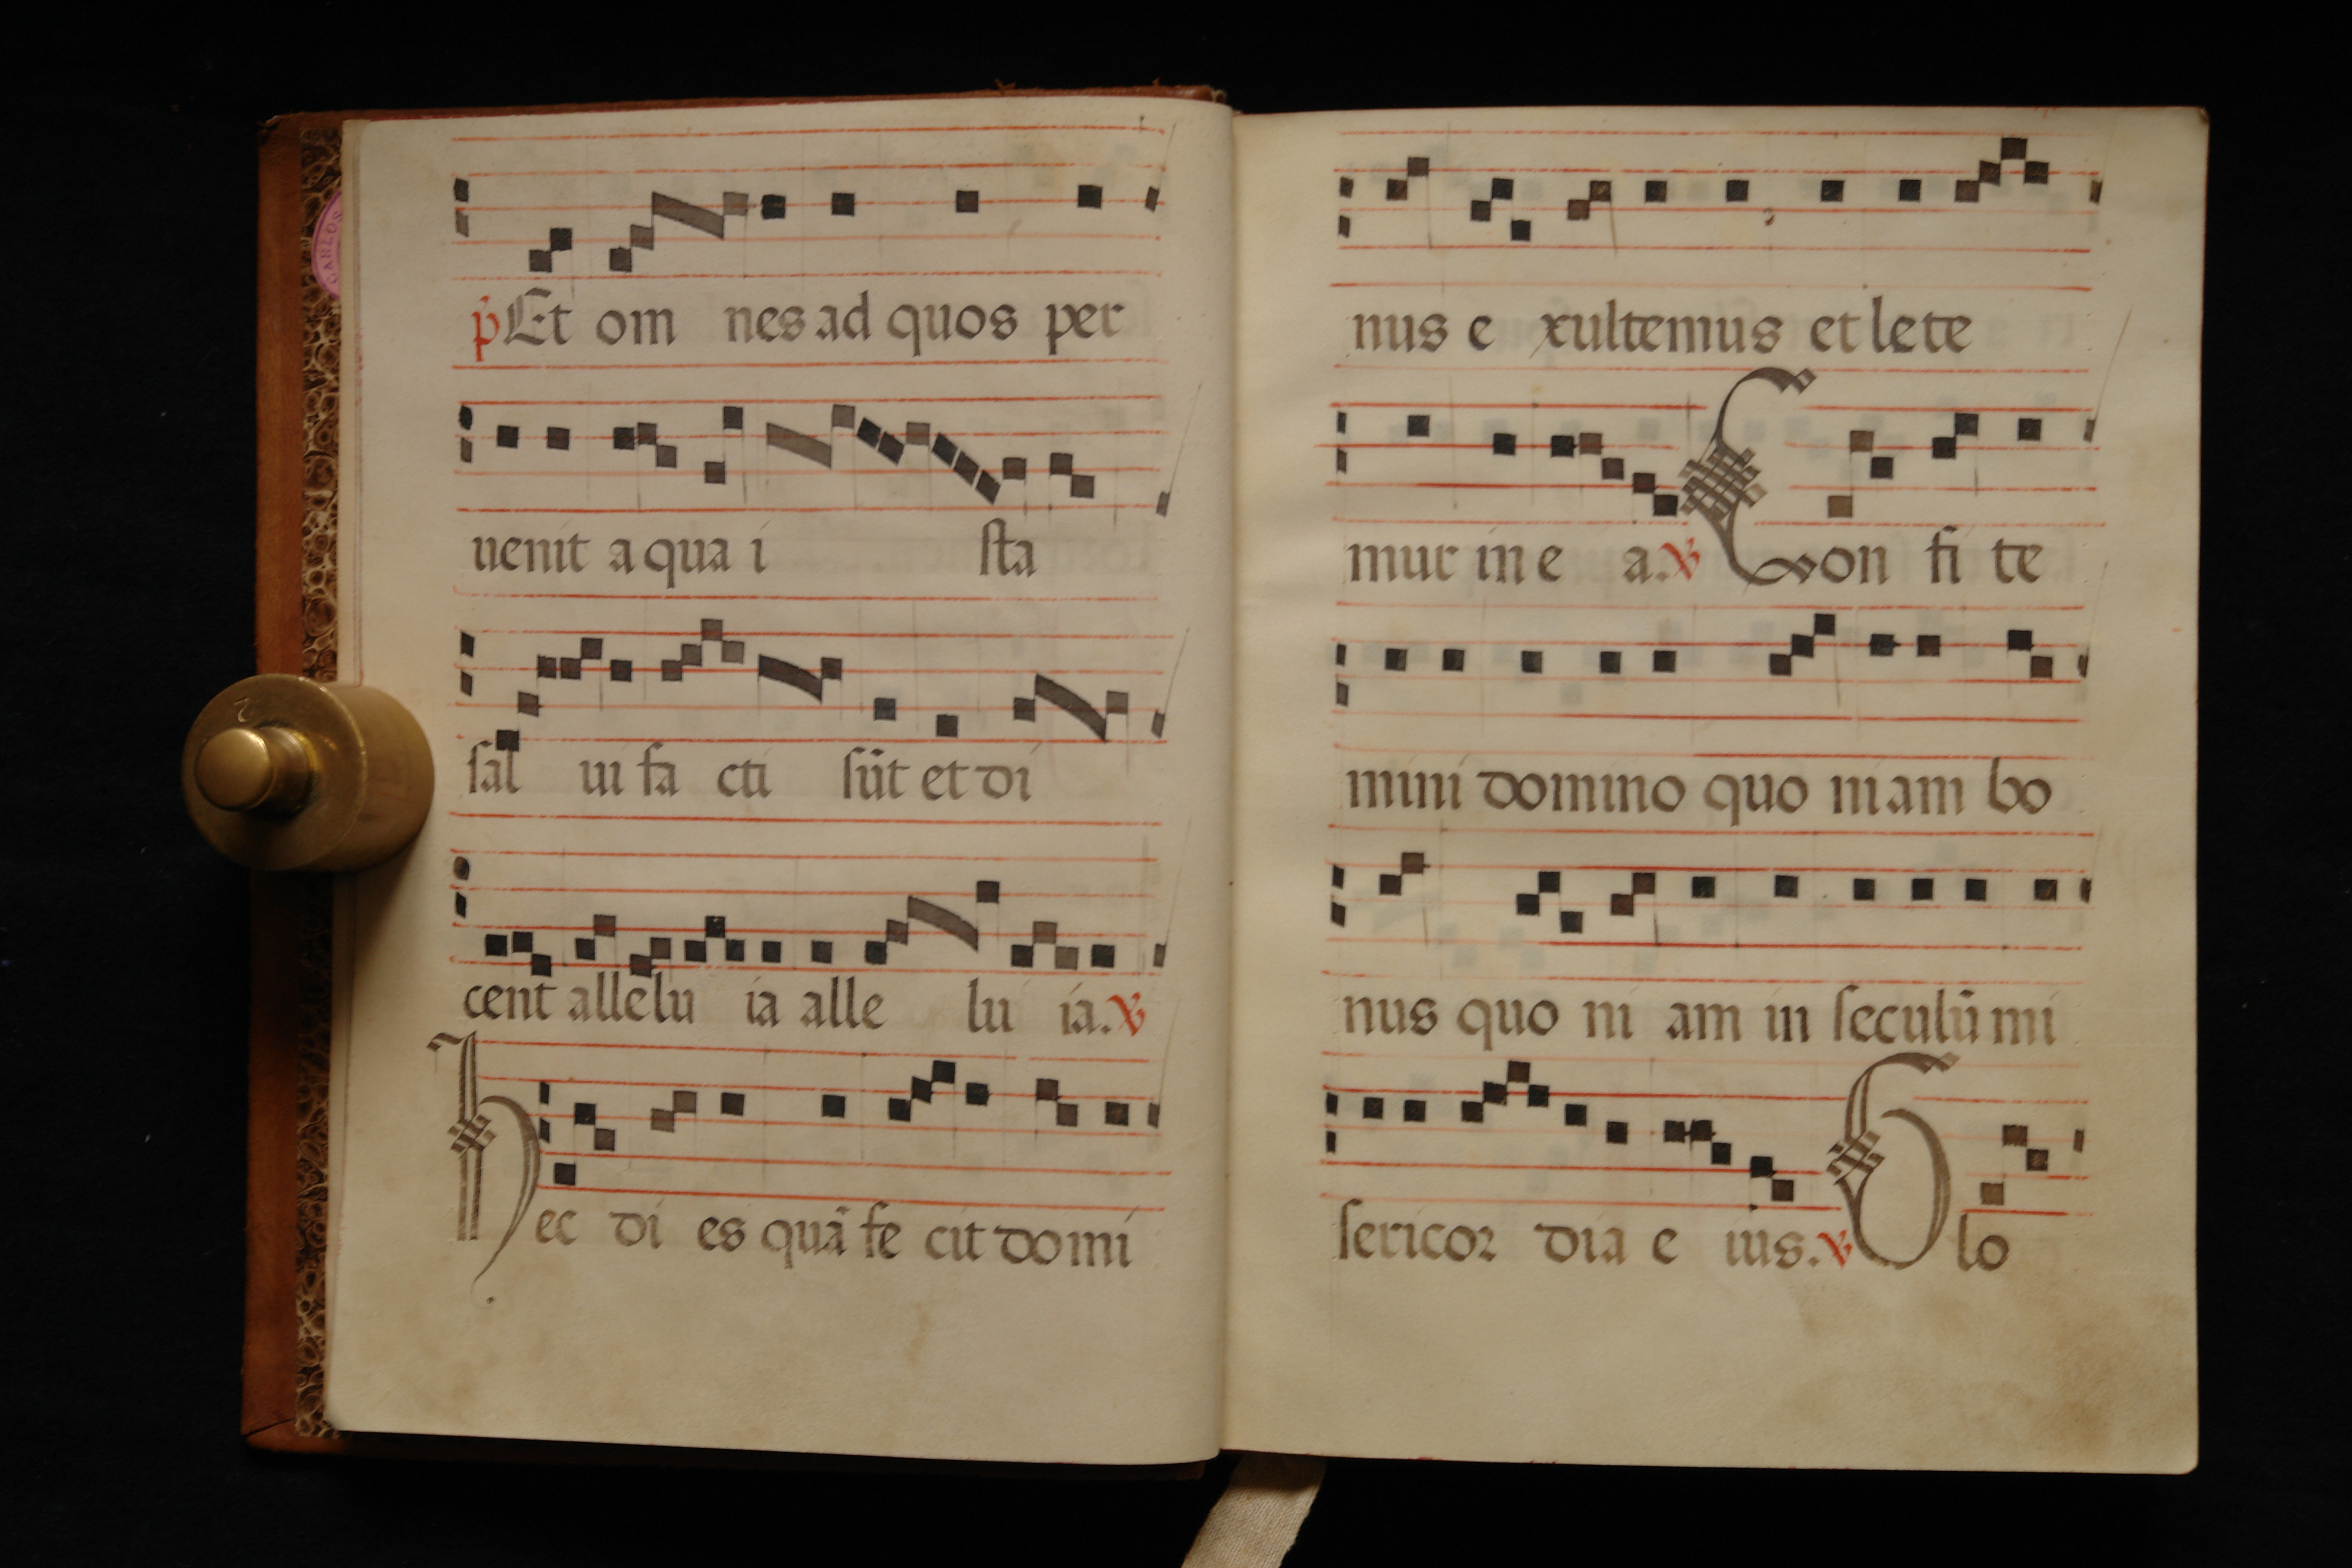 p̃ Et om nes ad quos per
uenit a qua i sta
sal ui fa cti sūt et di
cent allelu ia alle lu ia. v
Hec di es quā fe cit domi
nus e xultemus et lete
mur in e a. v Con fi te
mini domino quo niam bo
nus quo ni am in seculū mi
sericor dia e ius. v Glo
CARLOS
2